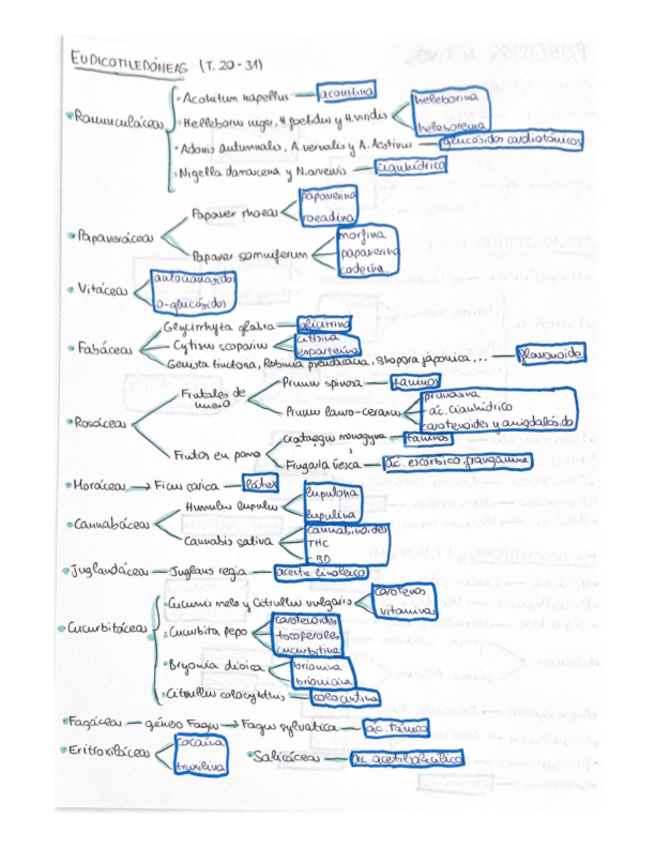 EUDICOTILEDÓNEAS (T. 20-31)
• Ranunculáceas
• Aconitum napellus — aconitina
• Helleborus niger, H. foetidus y H. viridis
heleborina
heleboreina
• Adonis autumnalis, A. vernalis y A. Aestivus — glucósidos cardiotónicos
• Nigella damascena y N. arvensis — cianhídrico
• Papaveráceas
Papaver rhoeas
papaverina
roeadina
Papaver somniferum
morfina
papaverina
codeína
• Vitáceas
antocianósidos
o-glucósidos
• Fabáceas
Glycirrhyta glabra — glicirrina
Cytisus scoparius
citisina
esparteina
Genista tinctoria, Robinia pseudoacacia, Sophora japonica,... — flavonoide
• Rosáceas
Frutales de hueso
Prunus spinosa — taninos
Prunus lauro-cerasus
prunasina
ác. cianhídrico
carotenoides y amigdalósido
Frutos en pomo
Crataegus monogyna — taninos
Fragaria vesca — ác. ascórbico, frangamine
• Moráceas → Ficus carica — látex
• Cannabáceas
Humulus lupulus
lupulona
lupulina
Cannabis sativa
cannabinoides
THC
CBD
• Juglandáceas — Juglans regia — aceite linoleico
• Cucurbitáceas
• Cucumis melo y Citrullus vulgaris
carotenos
vitaminas
• Cucurbita pepo
carotenoides
tocoferoles
cucurbitina
• Bryonia dioica
brionina
brionicina
• Citrullus colocynthis — colocintina
• Fagáceas — género Fagus → Fagus sylvatica — ác. tánico
• Eritroxiláceas
cocaína
truxilina
• Salicáceas — ác. acetilsalicílico